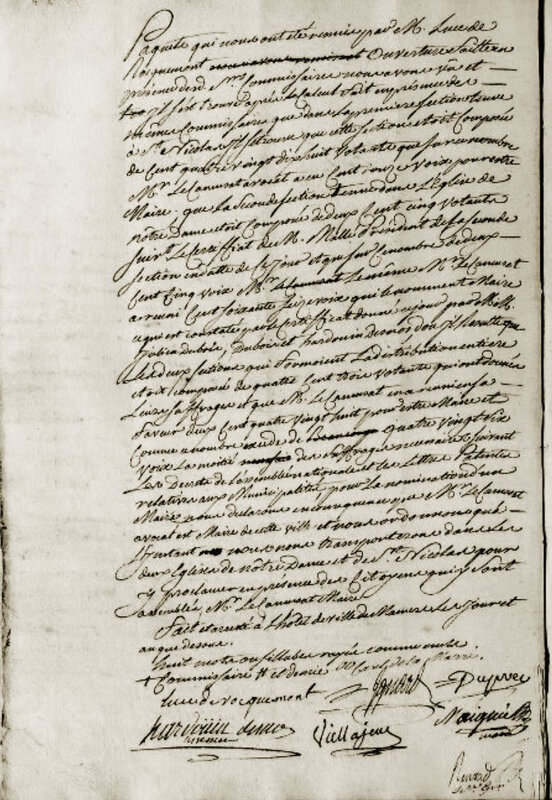 Paquets qui nous ont été remis par M. Luce de
Rocquemont ouverture faitte en
présence desd. Srs Commissaires nous avons vu et
il s'est trouvé après le calcul fait en présence des
mêmes Commissaires que dans la première section tenue
à St. Nicolas il se trouve que cette section étoit Composée
de Cent quatre vingt dix huit Votants que sur ce nombre
Mr. Le Camusat avocat a eu Cent onze Voix pour être
Maire. que la seconde section tenue dans l'Eglise de
notre Dame étoit Composée de deux Cent cinq Votants
suivt. le Certifficat de M. Président de la seconde
section en datte de ce jour et que sur ce nombre de deux
Cent Cinq voix Mr. Le Camusat
a réuni Cent soixante voix qui le nomment Maire
ce qui est constaté par le Certifficat donné ce jour par
Dubois et hardouin Desnos d'où il résulte que
Les deux sections qui formoient La distribution entiere
étoit composée de quatre Cent trois votants qui ont donnés
Leurs suffrages et que M. Le Camusat en a réuni en sa
faveur deux Cent quatre vingt huit pour être Maire et
Comme ce nombre excede de quatre vingt six
voix La moitié des suffrages nécessaires suivant
Les Decrets de l'assemblée nationale et les Lettres Patentes
relatives aux Municipalités, pour la nomination d'un
Maire nous déclarons en conséquence que Mr. Le Camusat
avocat est Maire de cette ville et nous ordonnons qu'à
l'instant nous nous transporterons dans les
deux Eglises de notre Dame et de St. Nicolas pour
y proclamer en présence des Citoyens qui y sont
assemblés, Mr. Le Camusat Maire
Fait et arrêté à l'hôtel de ville de Mamers Les jour et
an que dessus.
huit mots ou sillabes rayés comme nuls
Commissaire
Luce de rocquemont
hardouin desnos